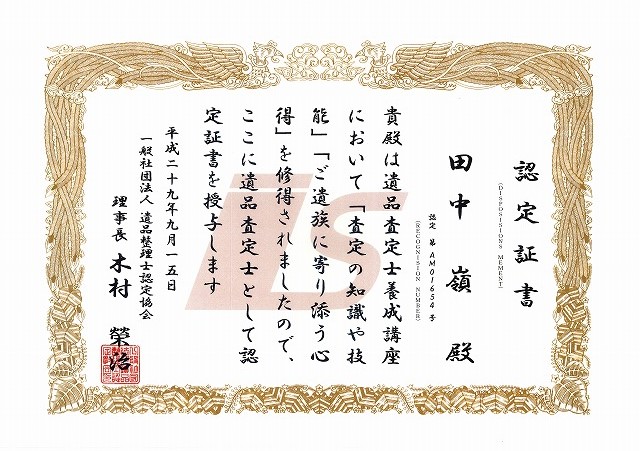 認定証書
(DISPOSISIONS MEMENT)
田中 嶺 殿
認定 第 AM01654号
(RECOGNISION NUMBER)
貴殿は遺品査定士養成講座
において「査定の知識や技
能」「ご遺族に寄り添う心
得」を修得されましたので、
ここに遺品査定士として認
定証書を授与します
平成二十九年九月一五日
一般社団法人 遺品整理士認定協会
理事長 木村 榮治